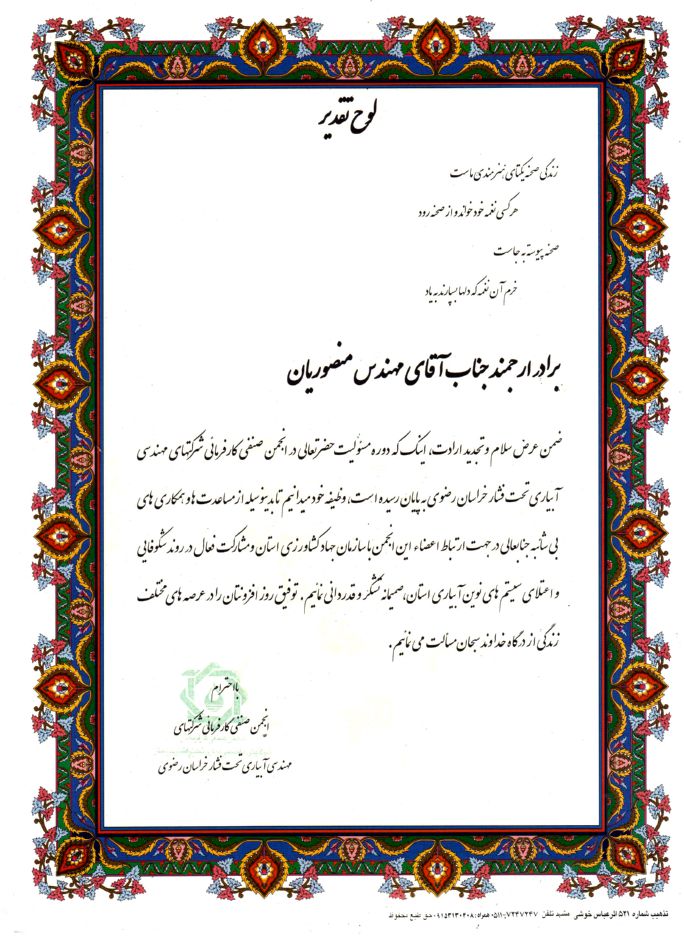 لوح تقدیر
زندگی صحنه یکتای هنرمندی ماست
هر کسی نغمه خود خواند و از صحنه رود
صحنه پیوسته به جاست
خرم آن نغمه که دلها بسپارند به یاد
برادر ارجمند جناب آقای مهندس منصوریان
ضمن عرض سلام و تجدید ارادت، اینک که دوره مسئولیت حضرتعالی در انجمن صنفی کارفرمانی شرکتهای مهندسی
آبیاری تحت فشار خراسان رضوی به پایان رسیده است، وظیفه خود میدانیم تا بدینوسیله از مساعدت ها و همکاری های
بی شائبه جنابعالی در جهت ارتباط اعضاء این انجمن با سازمان جهاد کشاورزی استان و مشارکت فعال در روند شکوفایی
و اعتلای سیستم های نوین آبیاری استان، صمیمانه تشکر و قدردانی نمائیم. توفیق روز افزونتان را در عرصه های مختلف
زندگی از درگاه خداوند سبحان مسألت می نمائیم.
با احترام
انجمن صنفی کارفرمانی شرکتهای
مهندسی آبیاری تحت فشار خراسان رضوی
تذهیب شماره ۵۲۱ اثر عباس خوشی مشهد تلفن ۷۲۴۷۲۴۷-۰۵۱۱ همراه: ۰۹۱۵۳۱۳۰۴۰۸ حق طبع محفوظ